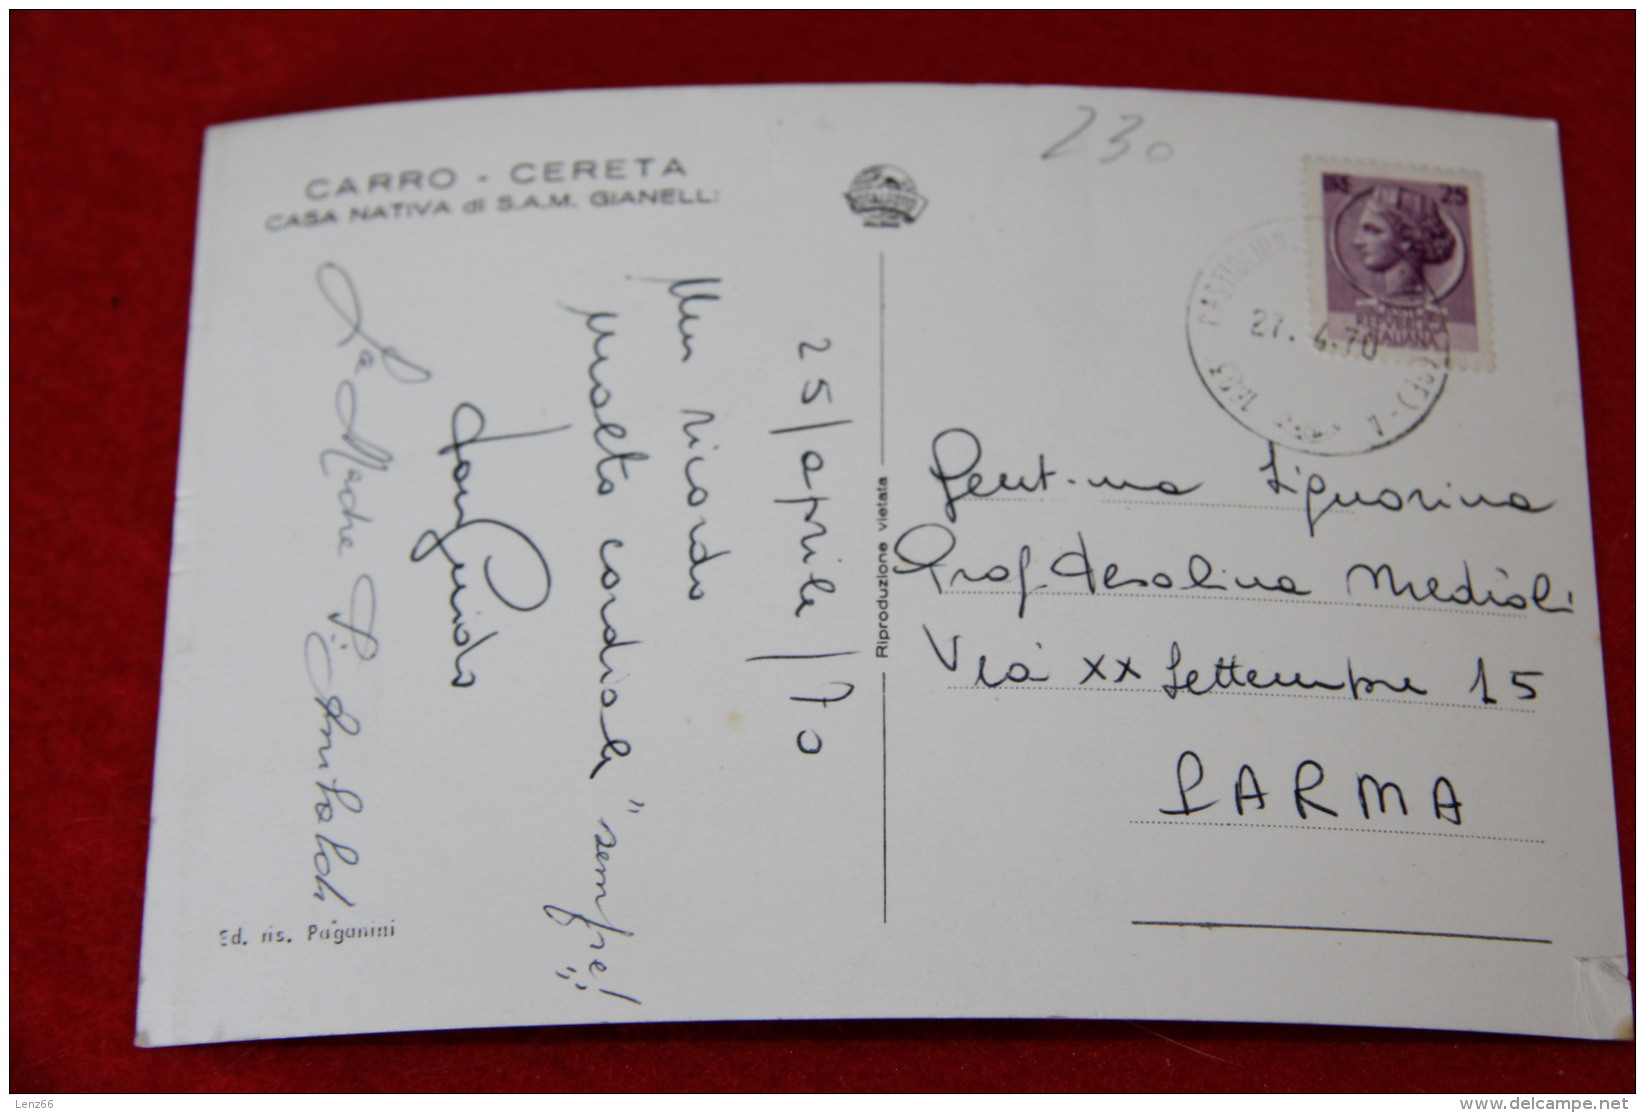 CARRO - CERETA
CASA NATIVA di S.A.M. GIANELLI
25/aprile/70
Un ricordo
molto cordiale "sempre!"
don Guido
La Madre
Ed. ris. Paganini
Riproduzione vietata
230
LIRE 25
REPUBBLICA
ITALIANA
27.4.70
Gent.ma Signorina
Prof. Desolina Medioli
Via XX Settembre 15
PARMA
Lenz66
delcampe.net